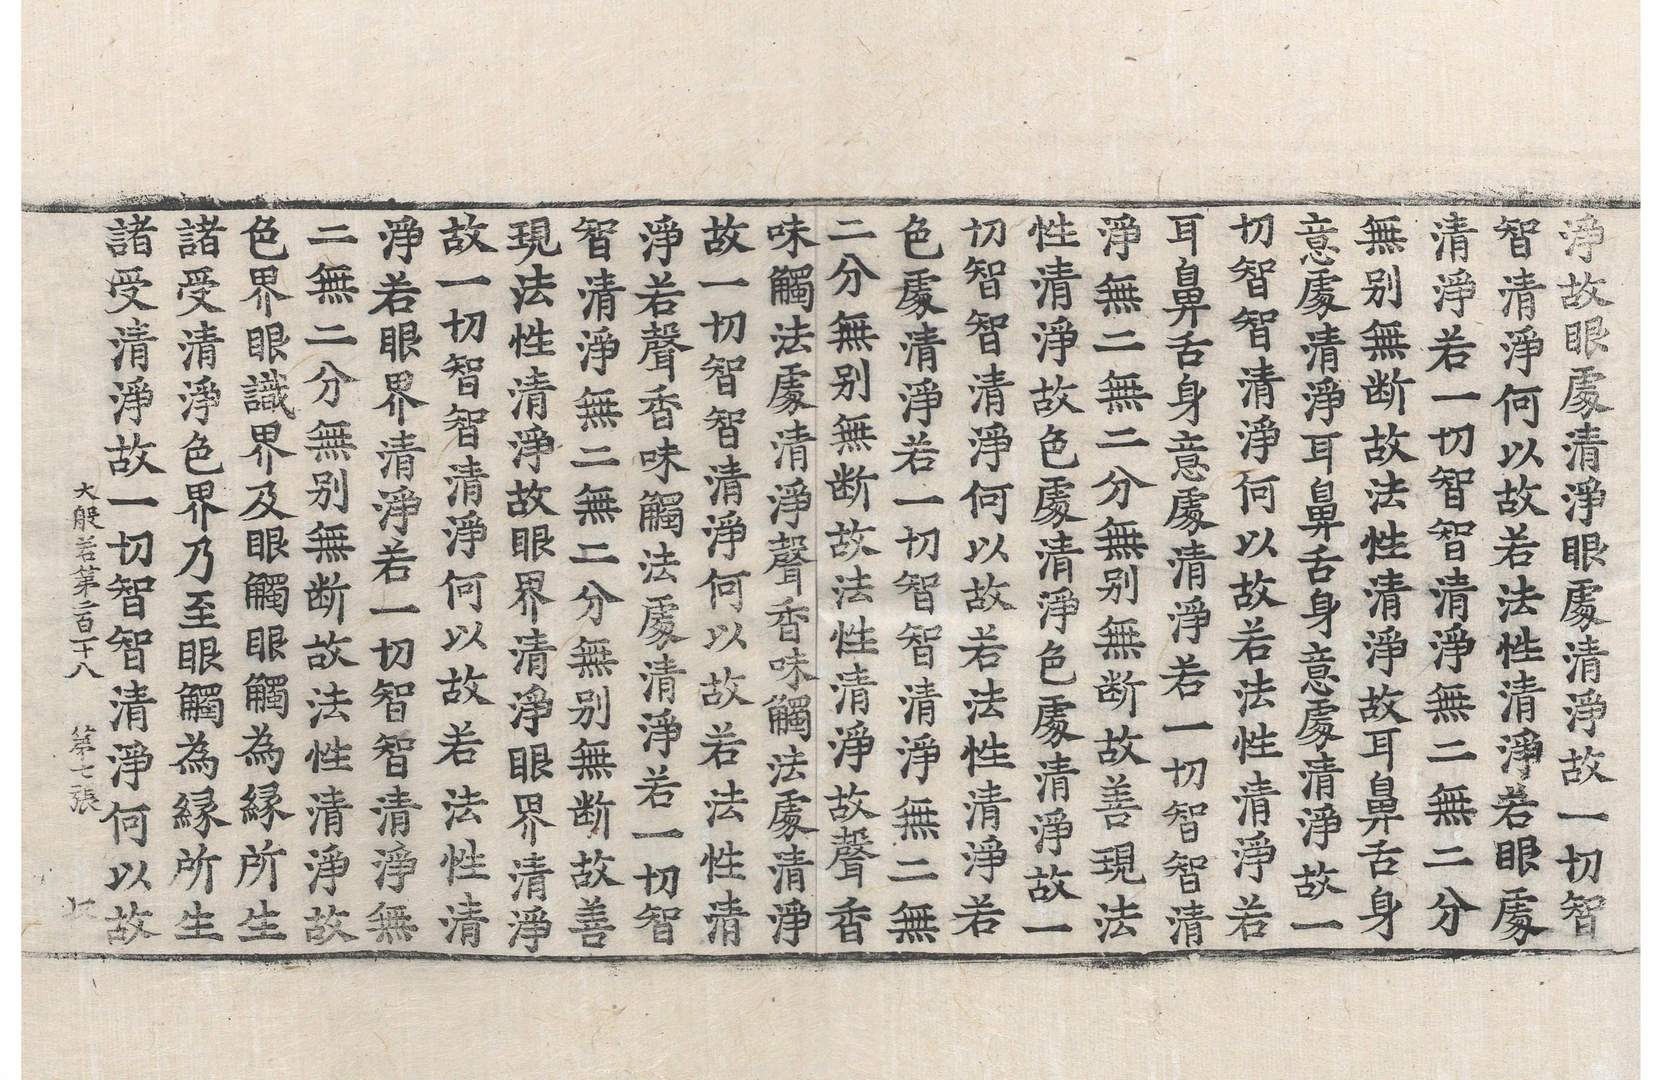 淨故眼處清淨眼處清淨故一切智
智清淨何以故若法性清淨若眼處
清淨若一切智智清淨無二無二分
無别無断故法性清淨故耳鼻舌身
意處清淨耳鼻舌身意處清淨故一
切智智清淨何以故若法性清淨若
耳鼻舌身意處清淨若一切智智清
淨無二無二分無别無断故善現法
性清淨故色處清淨色處清淨故一
切智智清淨何以故若法性清淨若
色處清淨若一切智智清淨無二無
二分無别無断故法性清淨故聲香
味觸法處清淨聲香味觸法處清淨
故一切智智清淨何以故若法性清
淨若聲香味觸法處清淨若一切智
智清淨無二無二分無别無断故善
現法性清淨故眼界清淨眼界清淨
故一切智智清淨何以故若法性清
淨若眼界清淨若一切智智清淨無
二無二分無别無断故法性清淨故
色界眼識界及眼觸眼觸為縁所生
諸受清淨色界乃至眼觸為縁所生
諸受清淨故一切智智清淨何以故
大般若第二百二十八 第七張